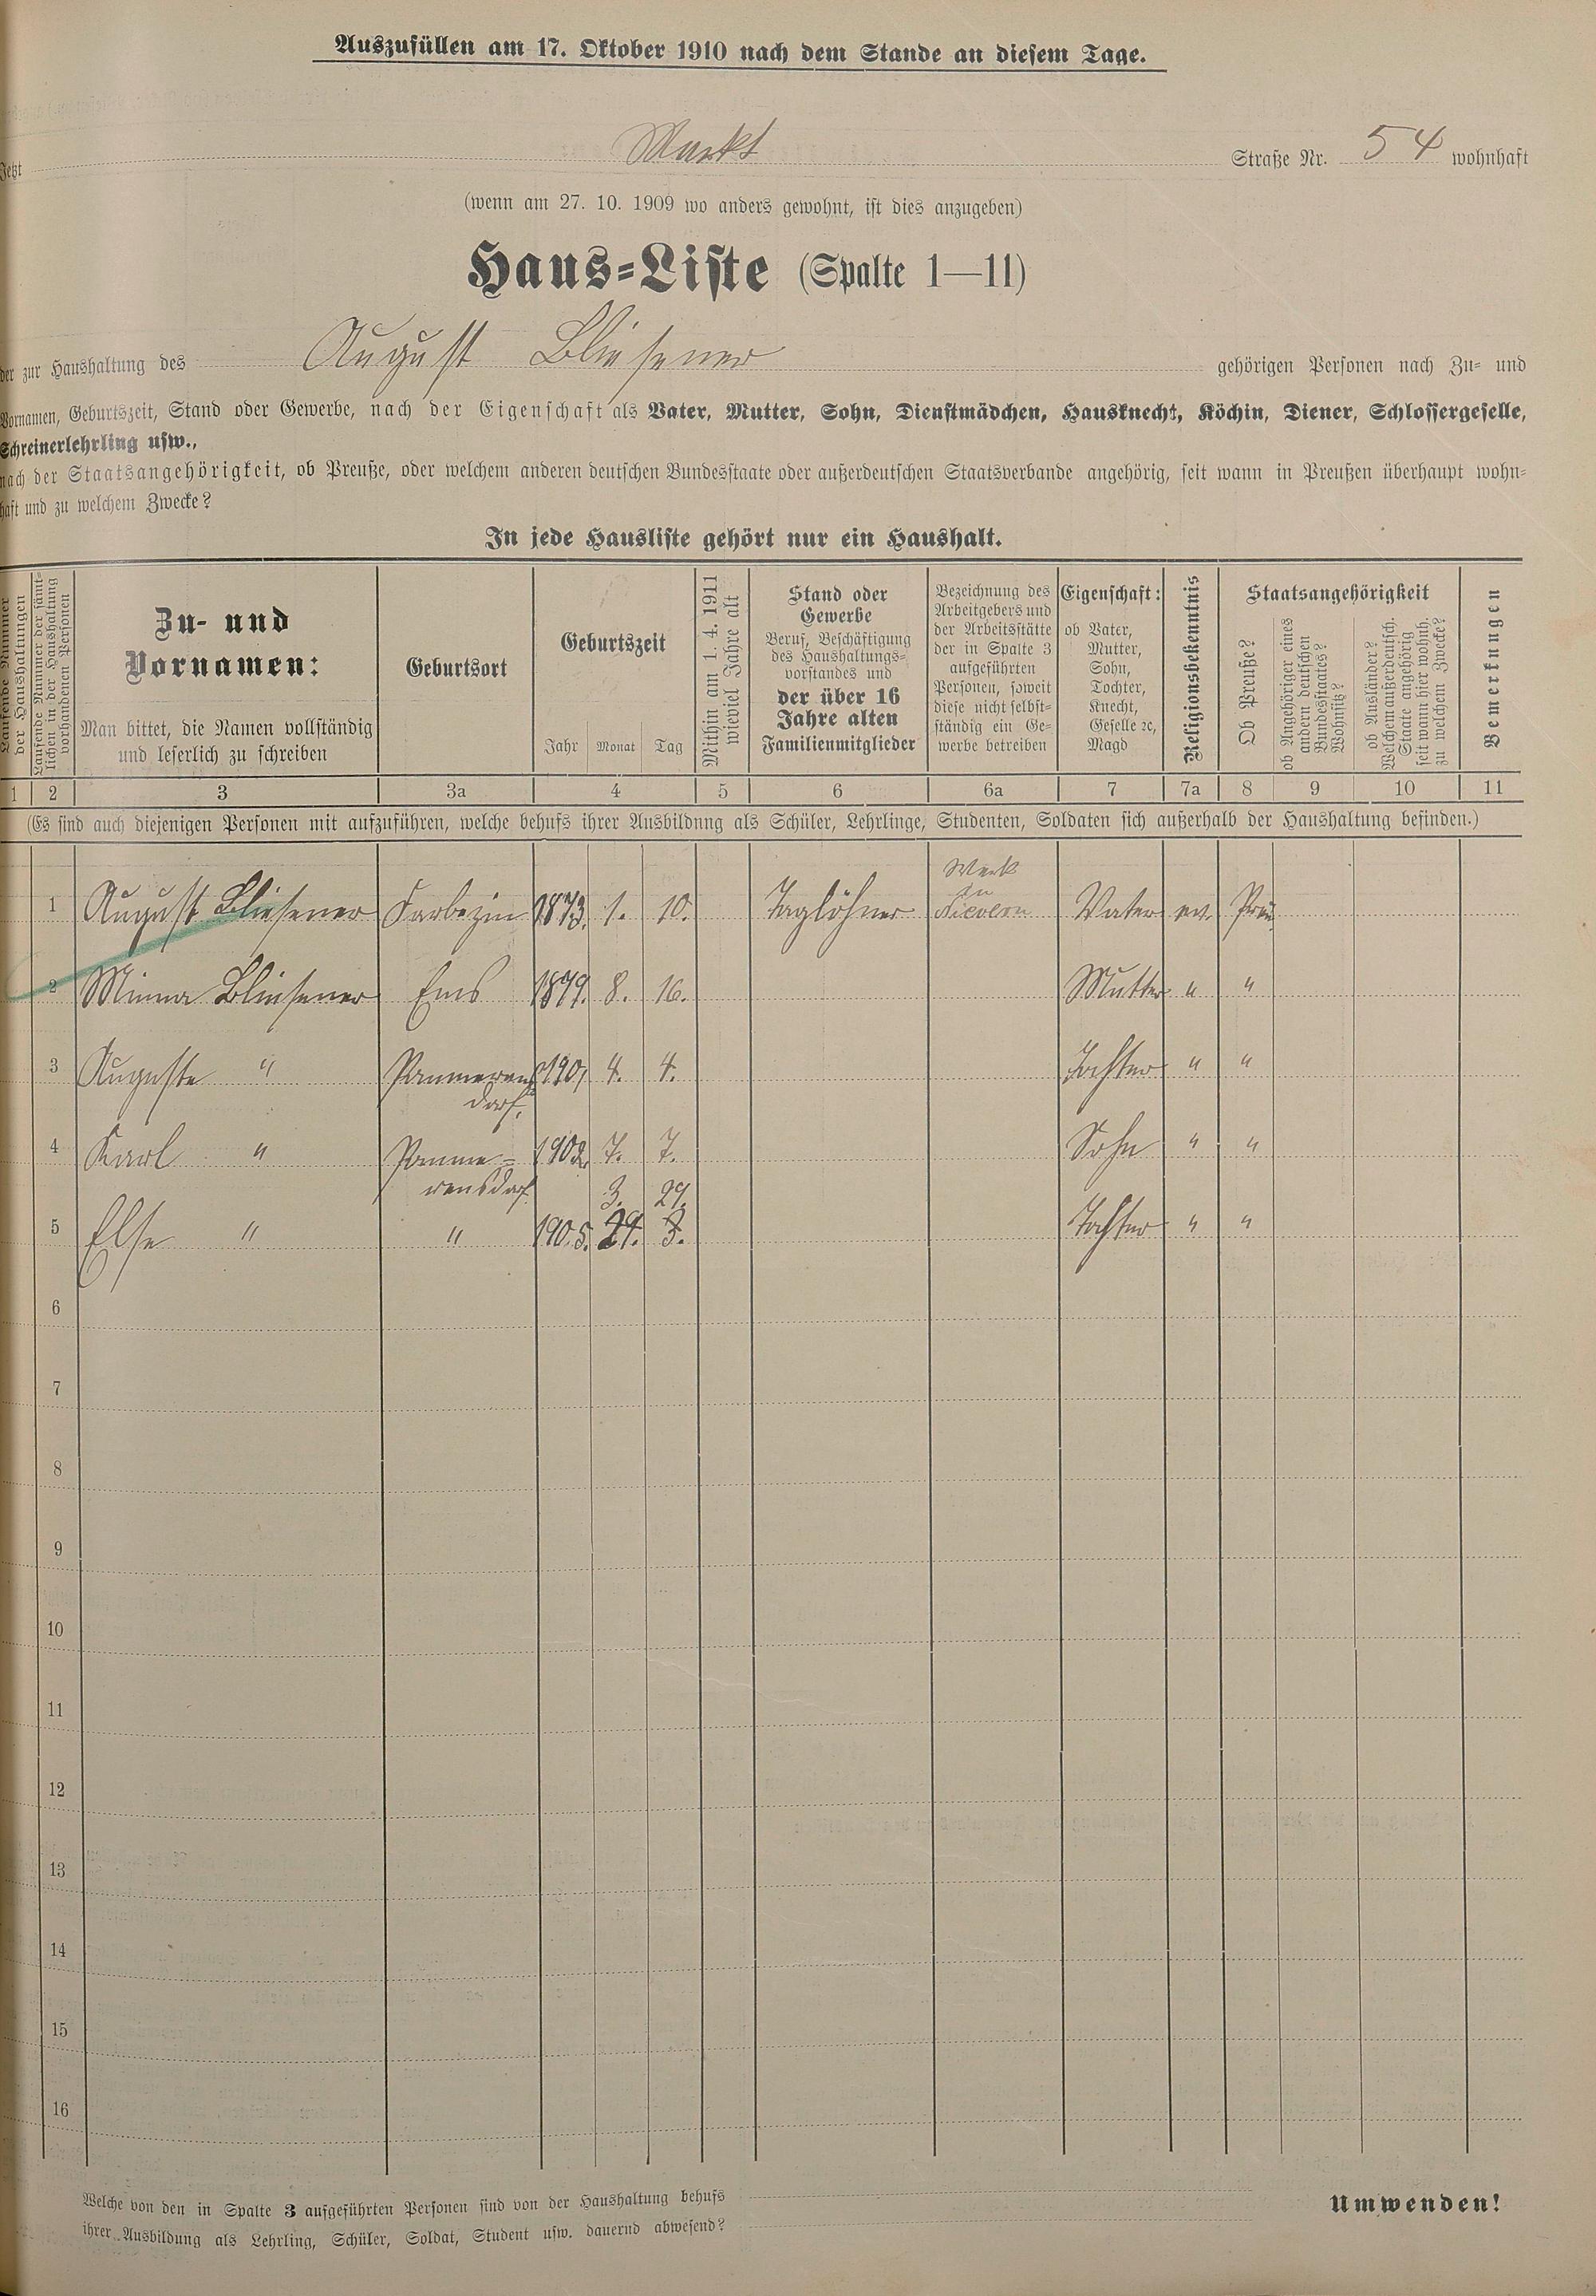 Auszufüllen am 17. Oktober 1910 nach dem Stande an diesem Tage.
Jetzt Markt Straße Nr. 54 wohnhaft
(wenn am 27. 10. 1909 wo anders gewohnt, ist dies anzugeben)
Haus-Liste (Spalte 1—11)
der zur Haushaltung des August Bliesener gehörigen Personen nach Zu- und
Vornamen, Geburtszeit, Stand oder Gewerbe, nach der Eigenschaft als Vater, Mutter, Sohn, Dienstmädchen, Hausknecht, Köchin, Diener, Schlossergeselle,
Schreinerlehrling usw.,
nach der Staatsangehörigkeit, ob Preuße, oder welchem anderen deutschen Bundesstaate oder außerdeutschen Staatsverbande angehörig, seit wann in Preußen überhaupt wohn-
haft und zu welchem Zwecke?
In jede Hausliste gehört nur ein Haushalt.
Laufende Nummer
der Haushaltungen
Laufende Nummer der sämt-
lichen in der Haushaltung
vorhandenen Personen
Zu- und
Vornamen:
Man bittet, die Namen vollständig
und leserlich zu schreiben
Geburtsort
Geburtszeit
Jahr Monat Tag
Mithin am 1. 4. 1911
wieviel Jahre alt
Stand oder
Gewerbe
Beruf, Beschäftigung
des Haushaltungs-
vorstandes und
der über 16
Jahre alten
Familienmitglieder
Bezeichnung des
Arbeitgebers und
der Arbeitsstätte
der in Spalte 3
aufgeführten
Personen, soweit
diese nicht selbst-
ständig ein Ge-
werbe betreiben
Eigenschaft:
ob Vater,
Mutter,
Sohn,
Tochter,
Knecht,
Geselle ec,
Magd
Religionsbekenntnis
Staatsangehörigkeit
Ob Preuße?
ob Angehöriger eines
andern deutschen
Bundesstaates?
Wohnsitz?
ob Ausländer?
Welchem außerdeutsch.
Staate angehörig
seit wann hier wohnh.
zu welchem Zwecke?
Bemerkungen
1 2 3 3a 4 5 6 6a 7 7a 8 9 10 11
(Es sind auch diejenigen Personen mit aufzuführen, welche behufs ihrer Ausbildung als Schüler, Lehrlinge, Studenten, Soldaten sich außerhalb der Haushaltung befinden.)
Werk
1 August Bliesener Farbezin 1873. 1. 10. Taglöhner Vater ev. Preu.
2 Minna Bliesener Ems 1879. 8. 16. Mutter " "
3 Auguste " Pommerens 1901 4. 4. Tochter " "
dorf.
4 Karl " Pomme- 1902. 7. 7. Sohn " "
rensdorf. 3. 29.
5 Else " " 1905. 29. 3. Tochter " "
6
7
8
9
10
11
12
13
14
15
16
Welche von den in Spalte 3 aufgeführten Personen sind von der Haushaltung behufs
ihrer Ausbildung als Lehrling, Schüler, Soldat, Student usw. dauernd abwesend?
Umwenden!